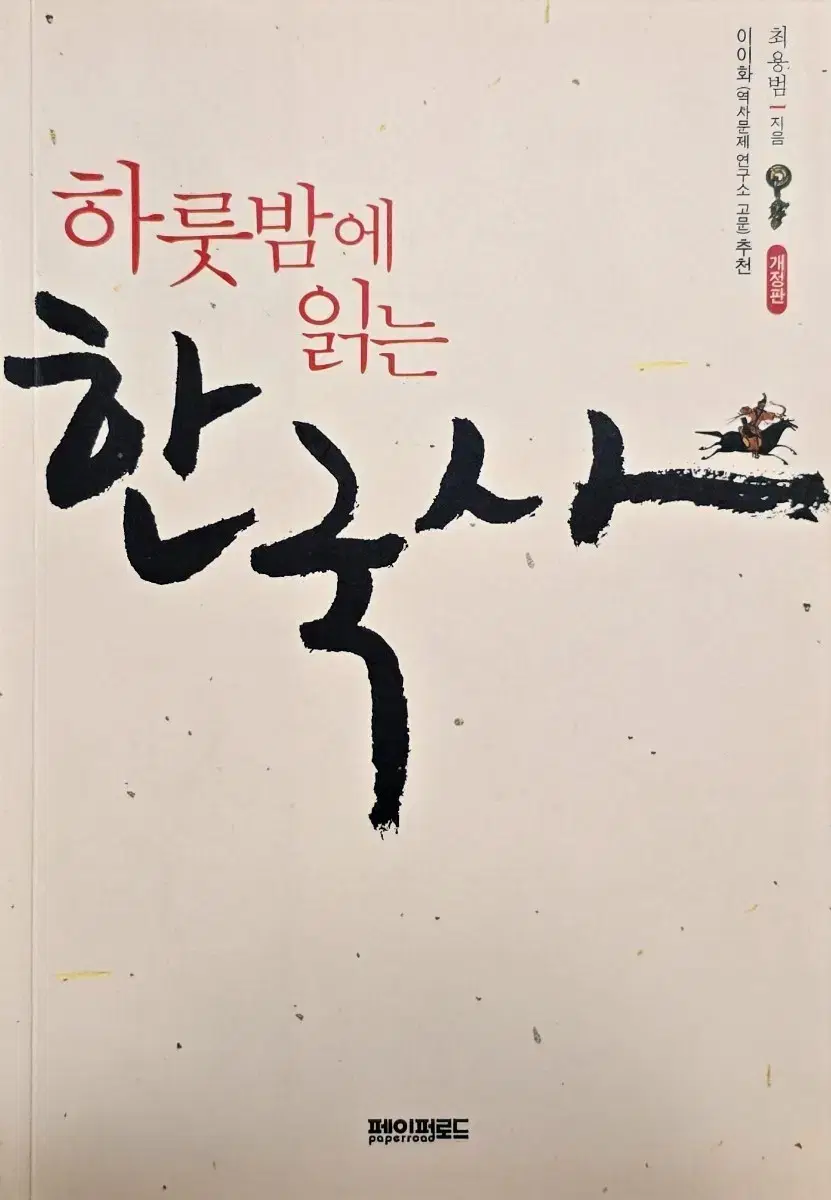 최용범 지음
이이화(역사문제 연구소 고문) 추천
개정판
하룻밤에
읽는
한국사
페이퍼로드
paperroad